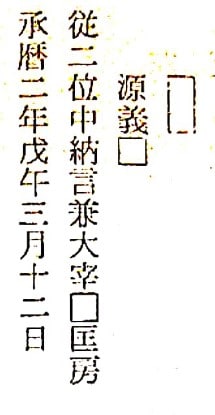 □
源義□
従二位中納言兼大宰□匡房
承暦二年戊午三月十二日